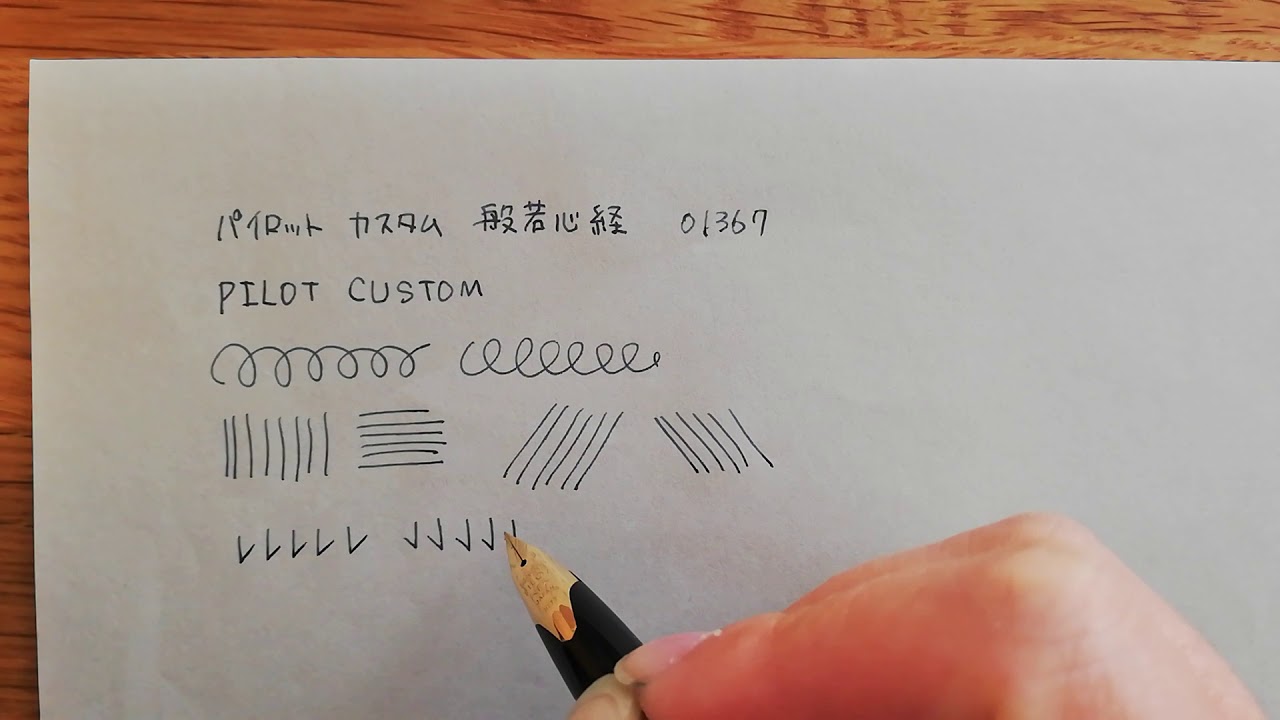 パイロット カスタム 般若心経 01367
PILOT CUSTOM